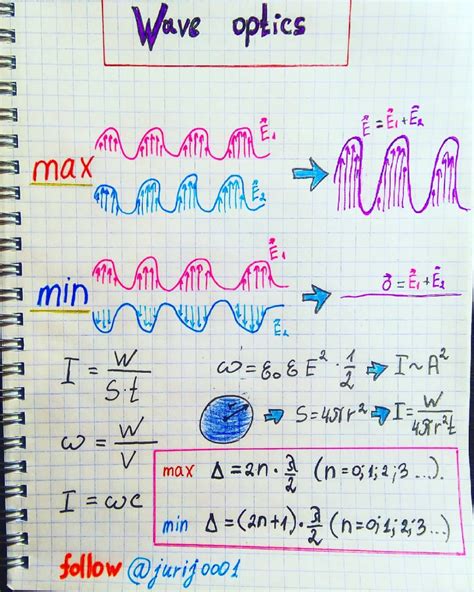 Wave optics
E⃗₁
E⃗ = E⃗₁ + E⃗₂
max
E⃗₂
E⃗₁
min
0⃗ = E⃗₁ + E⃗₂
E⃗₂
I = W/(S·t)
ω = ε₀ ε E² · 1/2 → I ~ A²
r → S = 4πr² → I = W/(4πr²t)
ω = W/V
max Δ = 2n · λ/2 (n = 0; 1; 2; 3 ...).
I = ωc
min Δ = (2n+1) · λ/2 (n = 0; 1; 2; 3 ...)
follow @jurij0001